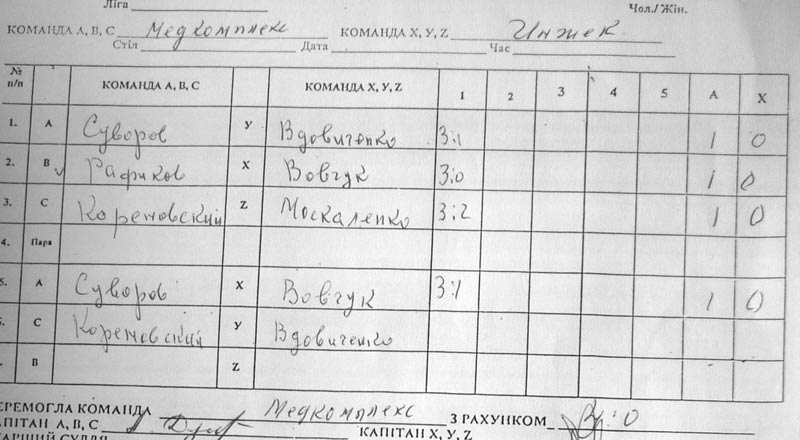 Ліга Чол./ Жін.
КОМАНДА А, В, С Медкомплекс КОМАНДА Х, У, Z Инжек
Стіл Дата Час
№ п/п КОМАНДА А, В, С КОМАНДА Х, У, Z 1 2 3 4 5 А Х
1. А Суворов У Вдовиченко 3:1 1 0
2. В Рафиков Х Вовчук 3:0 1 0
3. С Кореновский Z Москаленко 3:2 1 0
4. Пара
5. А Суворов Х Вовчук 3:1 1 0
С Кореновский У Вдовиченко
В Z
ЕРЕМОГЛА КОМАНДА Медкомплекс З РАХУНКОМ :0
АПІТАН А, В, С КАПІТАН Х, У, Z